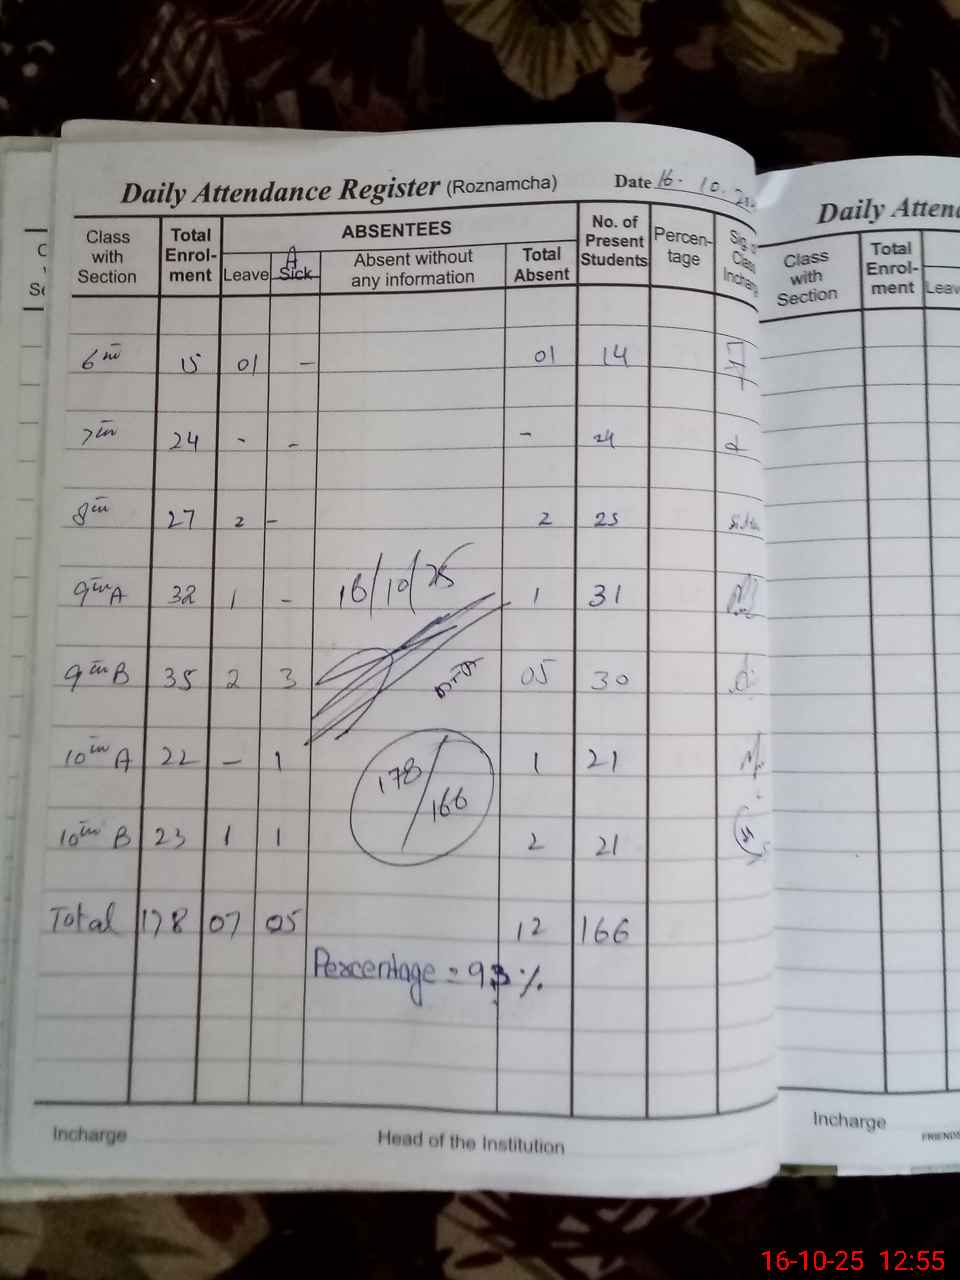 Daily Attendance Register (Roznamcha) Date 16. 10.
Class with Section Total Enrol-ment ABSENTEES No. of Present Students Percen-tage Sig. of Class Incharg
Leave A Sick Absent without any information Total Absent
6th 15 01 - 01 14
7th 24 - - - 24
8th 27 2 - 2 25
9th A 32 1 - 16/10/25 1 31
9th B 35 2 3 05 30
10th A 22 - 1 1 21
178/166
10th B 23 1 1 2 21
Total 178 07 05 12 166
Percentage = 93 %
Incharge Head of the Institution
Daily Atten
Class with Section Total Enrol-ment Leav
Incharge
FRIENDS
16-10-25 12:55